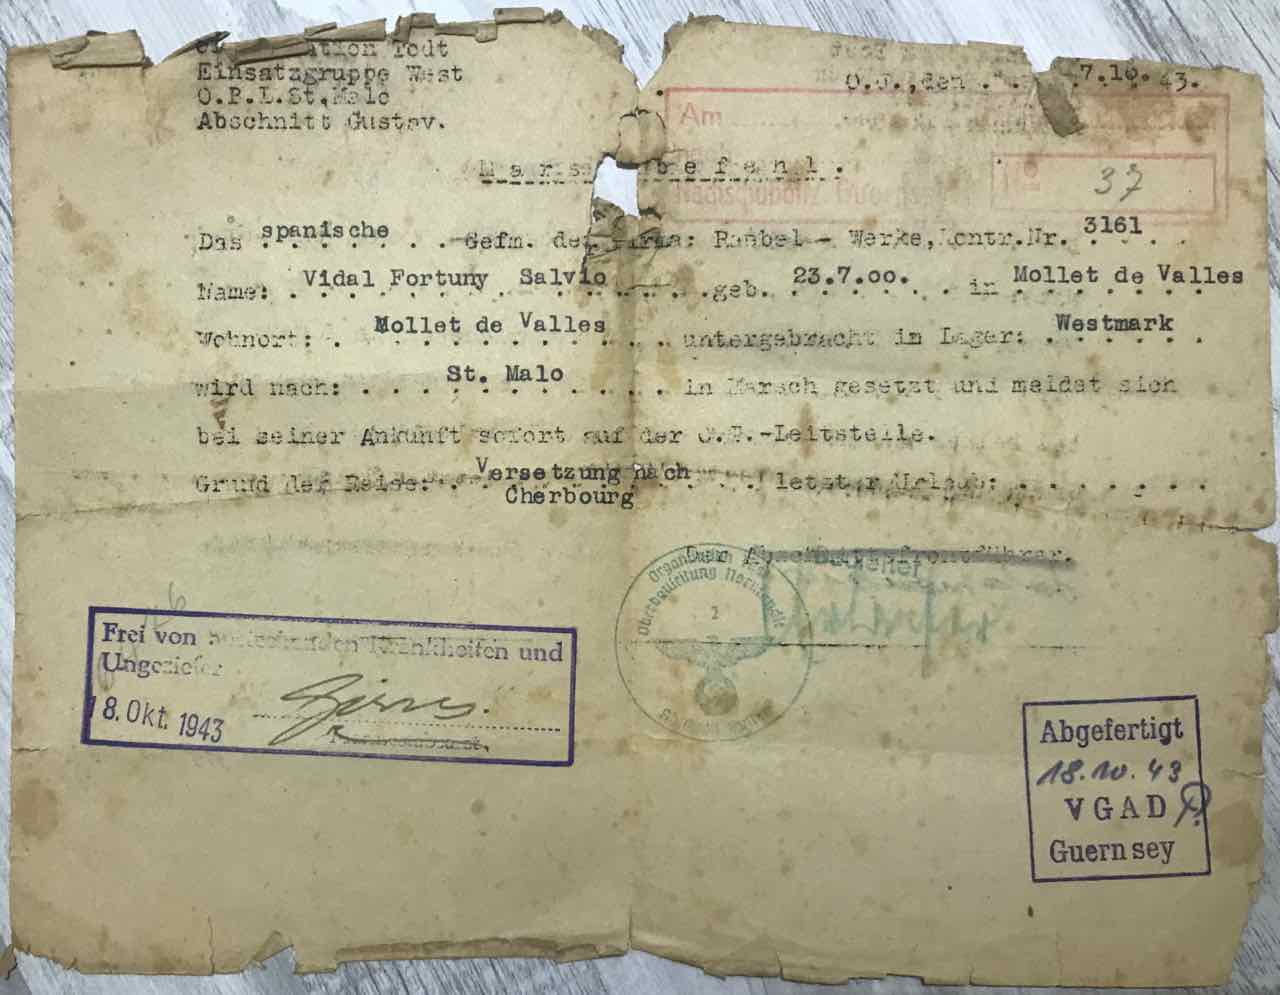 Todt
Einsatzgruppe West
O.P.L.St.Malo
Abschnitt Gustav.
O.U.,den 7.10.43.
Am
Nº 37
Das spanische Gefm. der Firma: Raebel - Werke,Kontr.Nr. 3161
Name: Vidal Fortuny Salvio geb. 23.7.00. in Mollet de Valles
Wohnort: Mollet de Valles untergebracht im Lager: Westmark
wird nach: St. Malo in Marsch gesetzt und meldet sich
bei seiner Ankunft sofort auf der O.T.-Leitstelle.
Grund der Reise: Versetzung nach letzter Urlaub:
Cherbourg
Der Abschnittsfrontführer.
Oberbauleitung Normandie
Frei von ansteckenden Krankheiten und
Ungeziefer
18. Okt. 1943
Abgefertigt
18.10.43
VGAD
Guernsey